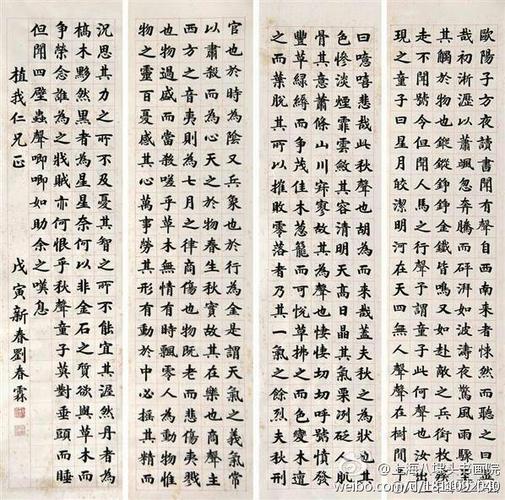 歐陽子方夜讀書聞有聲自西南来者悚然而聽之曰異
哉初淅瀝以蕭颯忽奔騰而砰湃如波濤夜驚風雨驟
其觸於物也鏦鏦錚錚金鐵皆鳴又如赴敵之兵銜枚
走不聞號令但聞人馬之行聲予謂童子此何聲也
視之童子曰星月皎潔明河在天四無人聲聲在樹間
曰噫嘻悲哉此秋聲也胡為而来哉蓋夫秋之為狀也其
色慘淡煙霏雲斂其容清明天高日晶其氣栗冽砭人肌
骨其意蕭條山川寂寥故其為聲也悽悽切切呼號憤發
豐草緑縟而爭茂佳木葱蘢而可悅草拂之而色變木遭
之而葉脫其所以摧敗零落者乃其一氣之餘烈夫秋刑
官也於時為陰又兵象也於行為金是謂天地之義氣常
以肅殺而為心天之於物春生秋實故其在樂也商聲主
西方之音夷則為七月之律商傷也物既老而悲傷夷戮
也物過盛而當殺嗟乎草木無情有時飄零人為動物惟
物之靈百憂感其心萬事勞其形有動於中必搖其精而
況思其力之所不及憂其智之所不能宜其渥然丹者為
槁木黟然黑者為星星奈何以非金石之質欲與草木而
争榮念誰為之戕賊亦何恨乎秋聲童子莫對垂頭而睡
但聞四壁蟲聲唧唧如助余之嘆息
植我仁兄正
戊寅新春劉春霖